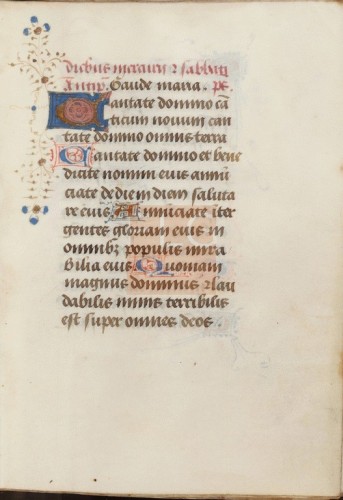 diebus mercurii ⁊ sabbati
Antiph. Gaude maria. ps.
Cantate domino cā
ticum novum can
tate domino omnis terra
Cantate domino et bene
dicite nomini eius annū
ciate de die in diem saluta
re eius. Annūciate iter
gentes gloriam eius in
omnibꝫ populis mira
bilia eius. Quoniam
magnus dominus ⁊ lau
dabilis nimis terribilis
est super omnes deos.